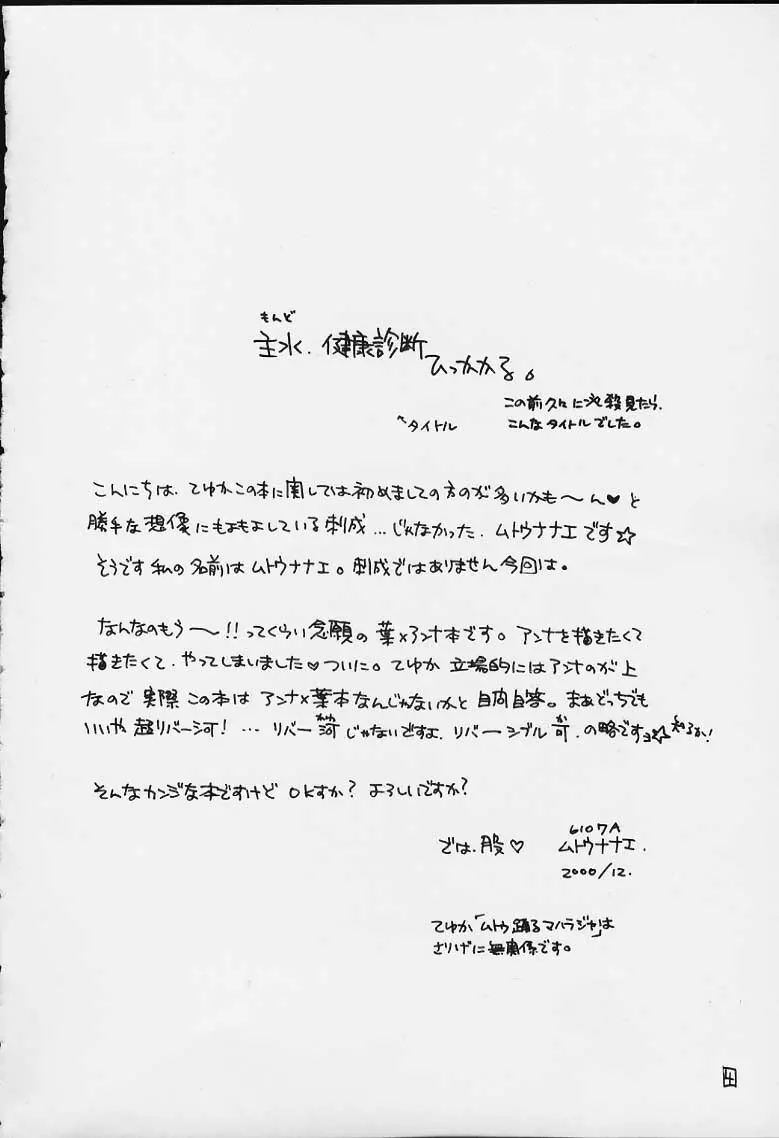 もんど
主水.健康診断
ひっかかる。
この前久々に必殺見たら.
←タイトル こんなタイトルでした。
こんにちは.てゆかこの本に関しては初めましての方のが多いかも〜ん♥と
勝手な想像にもよもよしている刺成…じゃなかった.ムトウナナエです☆
そうです私の名前はムトウナナエ。刺成ではありません今回は。
なんなのもう〜!!ってくらい念願の葉×アンナ本です。アンナを描きたくて
描きたくて.やってしまいました♥ついに。てゆか立場的にはアンナのが上
なので実際この本はアンナ×葉本なんじゃないかと自問自答。まあどっちでも
いいや超リバー河!…リバー河じゃないですよ.リバーシブル可.の略ですヨ☆知るか!
そんなカンジな本ですけどOKすか?よろしいですか?
では.股♡
6107A
ムトウナナエ.
2000/12.
てゆか「ムトウ踊るマハラジャ」は
さりげに無関係です。
4